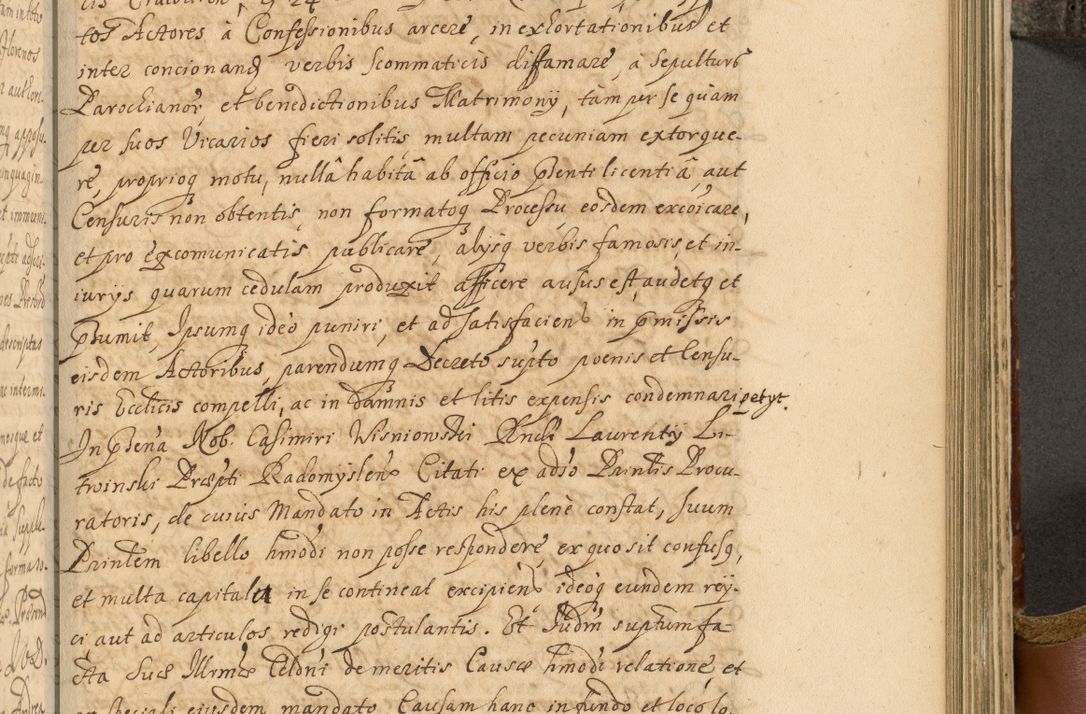 tos Actores à Confessionibus arcere, in exhortationibus et
inter concionand verbis scommaticis diffamare, à sepulturis
Parochianor, et benedictionibus Matrimonÿ, tàm per se quàm
per suos Vicarios fieri solitis, multam pecuniam extorque-
re, proprioq motu, nullâ habitâ ab officio pnti licentiâ, aut
Censuris non obtentis, non formatoq Processu, eosdem excoicare,
et pro excomunicatis publicare, alÿsq verbis famosis, et in-
iurÿs quarum cedulam produxit afficere ausus est, audetq et
psumit, Ipsumq ideo puniri, et ad satisfaciend in pmissis
eisdem Actoribus, parendumq Decreto supto poenis et Censu-
ris Ecclicis compelli, ac in damnis et litis expensis condemnari petÿt.
In pntia Nob. Casimiri Wisniowski Rndi Laurentÿ Li-
twinski Præpti Radomyslen Citati ex adso Printis Procu-
ratoris, de cuius Mandato in Actis his plenè constat, suum
Printem libello hmodi non posse respondere, ex quo sit confusq,
et multa capitalia in se contineat excipien ideoq eundem reÿ-
ci aut ad articulos redigi postulantis. Et Iudm suptum fa-
cta suæ Illrmæ Celdni de meritis Causæ hmodi relatione, et
ex speciali eiusdem mandato Causam hanc in fundo et loco lo-
tam in toto
Florenos
et immuni
descriptas
nesque et
de facto